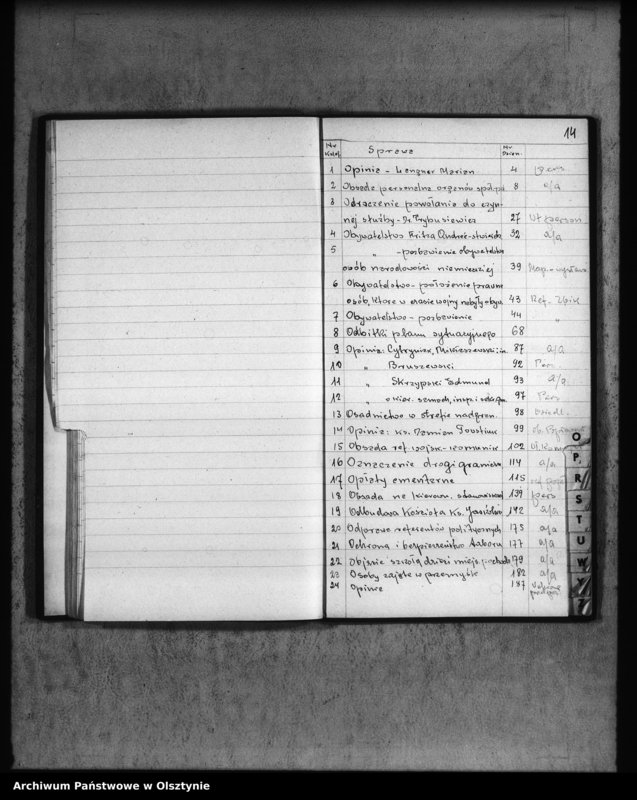 14
Nr Kolej. Sprawa Nr Dzien.
1 Opinia - Lengner Marian 4 pers
2 Obsada personalna organów spół. 8 a/a
3 Odroczenie powołania do czyn-
nej służby - Dr Prybusiewicz 27
4 Obywatelstwo Fritza 32 a/a
5 " - pozbawienie obywatelstw
osób narodowości niemieckiej 39
6 Obywatelstwo - położenie prawne
osób, które w czasie wojny nabyły obyw. 43 Ref.
7 Obywatelstwo - pozbawienie 44 "
8 Odbitki planu sytuacyjnego 68
9 Opinia: 87 a/a
10 " Bruszewski 92 Pers.
11 " Skrzypski Edmund 93 a/a
12 " o kier. samoch, insp. 97 Pers
13 Osadnictwo w strefie nadgran. 98 Osiedl.
14 Opinia: ks. Damian 99
15 Obsada ref. wojsk.-komunik 102
16 Oznaczenie drogi graniczn 114 a/a
17 Opłaty cmentarne 115
18 Obsada na kierown. 139 pers
19 Odbudowa Kościoła Ks. 142 a/a
20 Odprawa referentów politycznych 175 a/a
21 Ochrona i bezpieczeństwo taboru 177 a/a
22 Objęcie szkołą dzieci miejs. pochodz. 179 a/a
23 Osoby zajęte w przemyśle 182 a/a
24 Opinie 187
O
P
R
S
T
U
W
Y
Archiwum Państwowe w Olsztynie